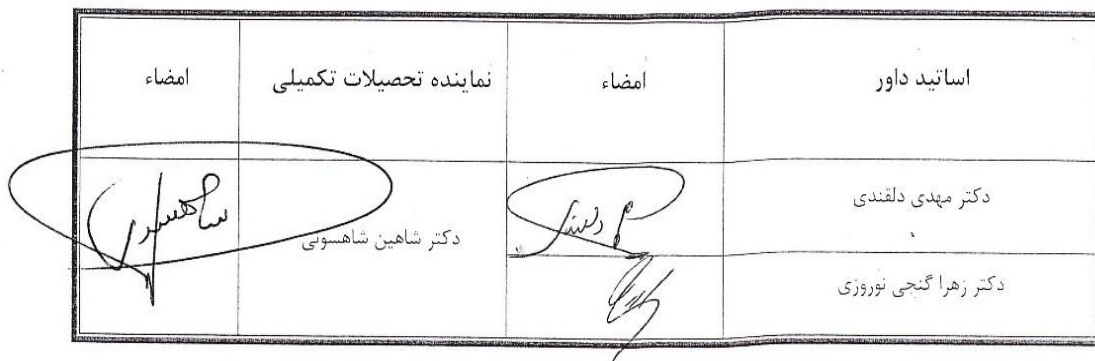 اساتید داور
امضاء
نماینده تحصیلات تکمیلی
امضاء
دکتر مهدی دلقندی
دکتر شاهین شاهسونی
دکتر زهرا گنجی نوروزی